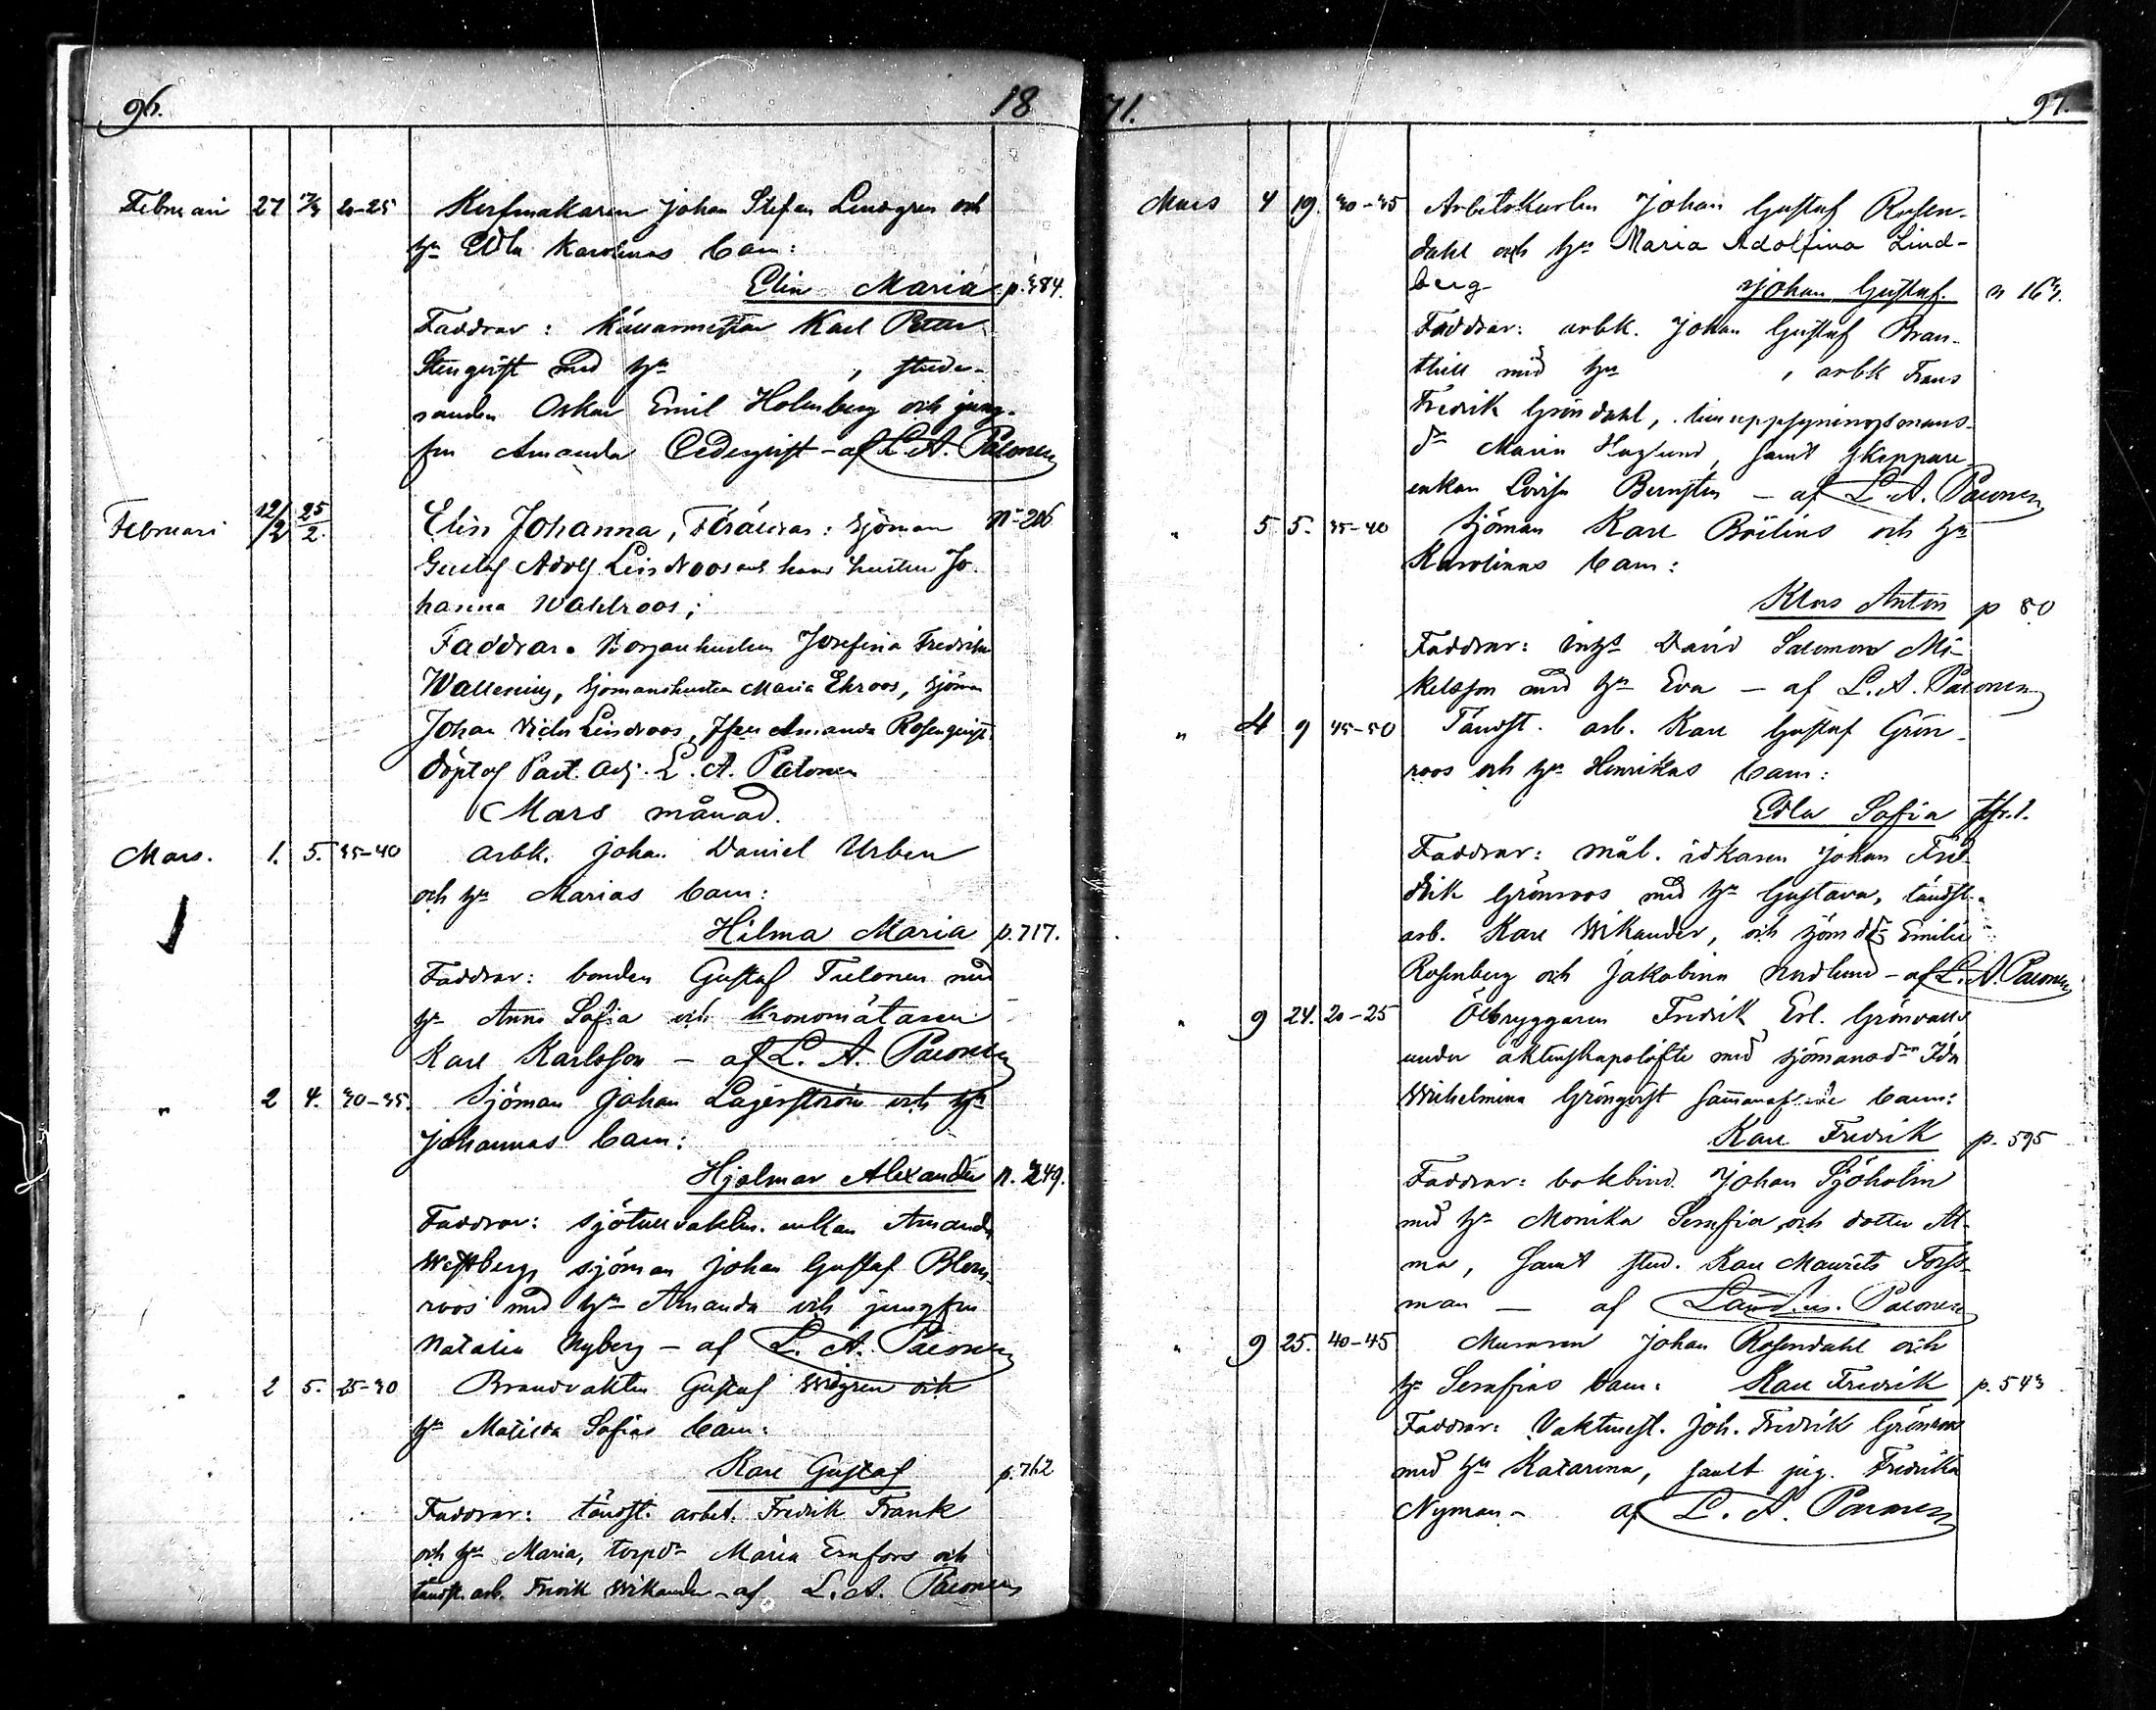 96. 18
Februari 27 12/3 20-25 Korfmakaren Johan Stefan Lindgren och
hu Edla Karolinas barn:
Elin Maria p. 384.
Faddrar: källarmästar Karl Petter
Stenqvist med hu , stude-
randen Oskar Emil Holmberg och jung-
fru Amanda Cederqvist - af L. A. Palonen
Februari 12/2 25/2 Elin Johanna, Föräldrar: Sjöman n 206
Gustaf Adolf Lindroos och hans hustru Jo
hanna Wahlroos;
Faddrar. Borgarhustrun Josefina Fredrika
Wallenius, Sjömanshustrun Maria Ekroos, Sjöman
Johan Victor Lindroos, Jfru Amanda Rosenqvist.
döpt af Past. Adj. L. A. Palonen
Mars månad.
Mars. 1. 5. 35-40 Arbk. Johan Daniel Urben
och hu Marias barn:
Hilma Maria p. 717.
Faddrar: bonden Gustaf Tulonen med
hu Anna Sofia och kronomätaren
Karl Karlsson - af L. A. Palonen
" 2 4. 30-35. Sjöman Johan Lagerström och hu
Johannas barn:
Hjalmar Alexander n. 249.
Faddrar: sjötullvaktm. enkan Amanda
Westberg, sjöman Johan Gustaf Blom-
roos med hu Amanda och jungfru
Natalia Nyberg - af L. A. Palonen
" 2 5. 25-30 Brandvakten Gustaf Widgren och
hu Matilda Sofias barn:
Karl Gustaf p. 762
Faddrar: tändst. arbet. Fredrik Frank
och hu Maria, torpdr Maria Ernfors och
tändst. arb. Fredrik Wikander - af L. A. Palonen
71. 97.
Mars 4 19. 30-35 Arbetskarlen Johan Gustaf Rosen-
dahl och hu Maria Adolfina Lind-
berg Johan Gustaf. n 163.
Faddrar: arbk. Johan Gustaf Bran-
thill med hu , arbk Frans
Fredrik Gröndahl, uppsyningsmans
dr Maria Haglund, samt skeppare
enkan Lovisa Bernsten - af L. A. Palonen
" 5 5. 35-40 Sjöman Karl Böilius och hu
Karolinas barn:
Klas Anton p 80
Faddrar: inhs David Salomon Mi-
kelsson med hu Eva - af L. A. Palonen
" 4 9 45-50 Tändst. arb. Karl Gustaf Grön-
roos och hu Henrikas barn:
Edla Sofia tfr. 1.
Faddrar: mål. idkaren Johan Fred-
drik Grönroos med hu Gustava, tändst.
arb. Karl Wikander, och sjöm ddr Emilia
Rosenberg och Jakobina Nordlund - af L. A. Palonen
" 9 24. 20-25 Ölbryggaren Fredrik Evl. Grönvalls
under äktenskapslöfte med sjömansdn Ida
Wilhelmina Grönqvist sammanaflade barn:
Karl Fredrik p. 595
Faddrar: bokbind. Johan Sjöholm
med hu Monika Serafia, och dotter Al-
ma, samt stud. Karl Maurits Forss-
man - af Laud. us. Palonen
" 9 25. 40-45 Muraren Johan Rosendahl och
hu Serafias barn: Karl Fredrik p. 543
Faddrar: Vaktmest. Joh. Fredrik Grönroos
med hu Katarina, samt jug. Fredrika
Nyman - af L. A. Palonen